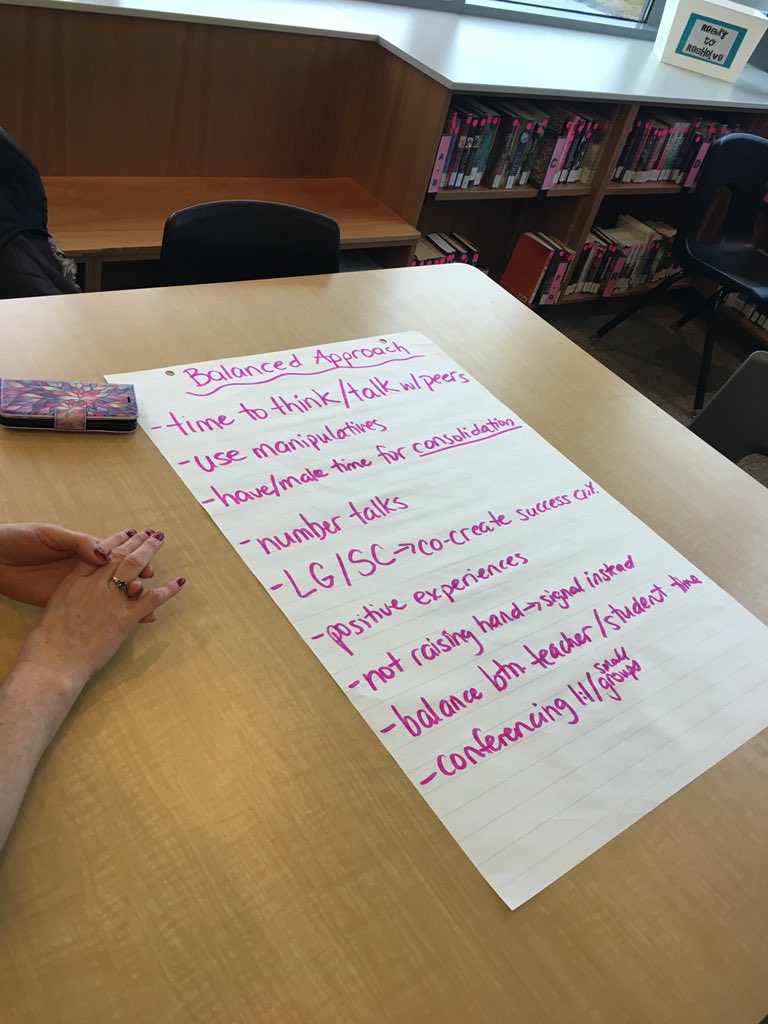 Ready
to
Resolve
A
C
D
Balanced Approach
- time to think/talk w/ peers
- use manipulatives
- have/make time for consolidation
- number talks
- LG/SC → co-create success crit.
- positive experiences
- not raising hand → signal instead
- balance btn. teacher/student time
- conferencing 1:1/small groups